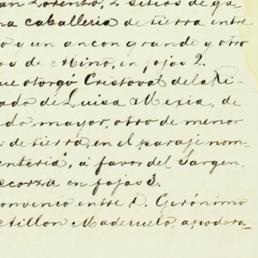 an Lorenzo, 2 sitios de ga-
na caballeria de tierra entre
o y un ancon grande y otro
os de Mino, en fojas 2.
ue otorgó Cristoval del Ri-
ado de Luisa Mexia, de
do mayor, otro de menor
s de tierra, en el paraje nom-
enteria, a favor del Sargen-
ecorza en fojas 3.
onvenio entre D. Gerónimo
stillon Maderuelo, apodera-